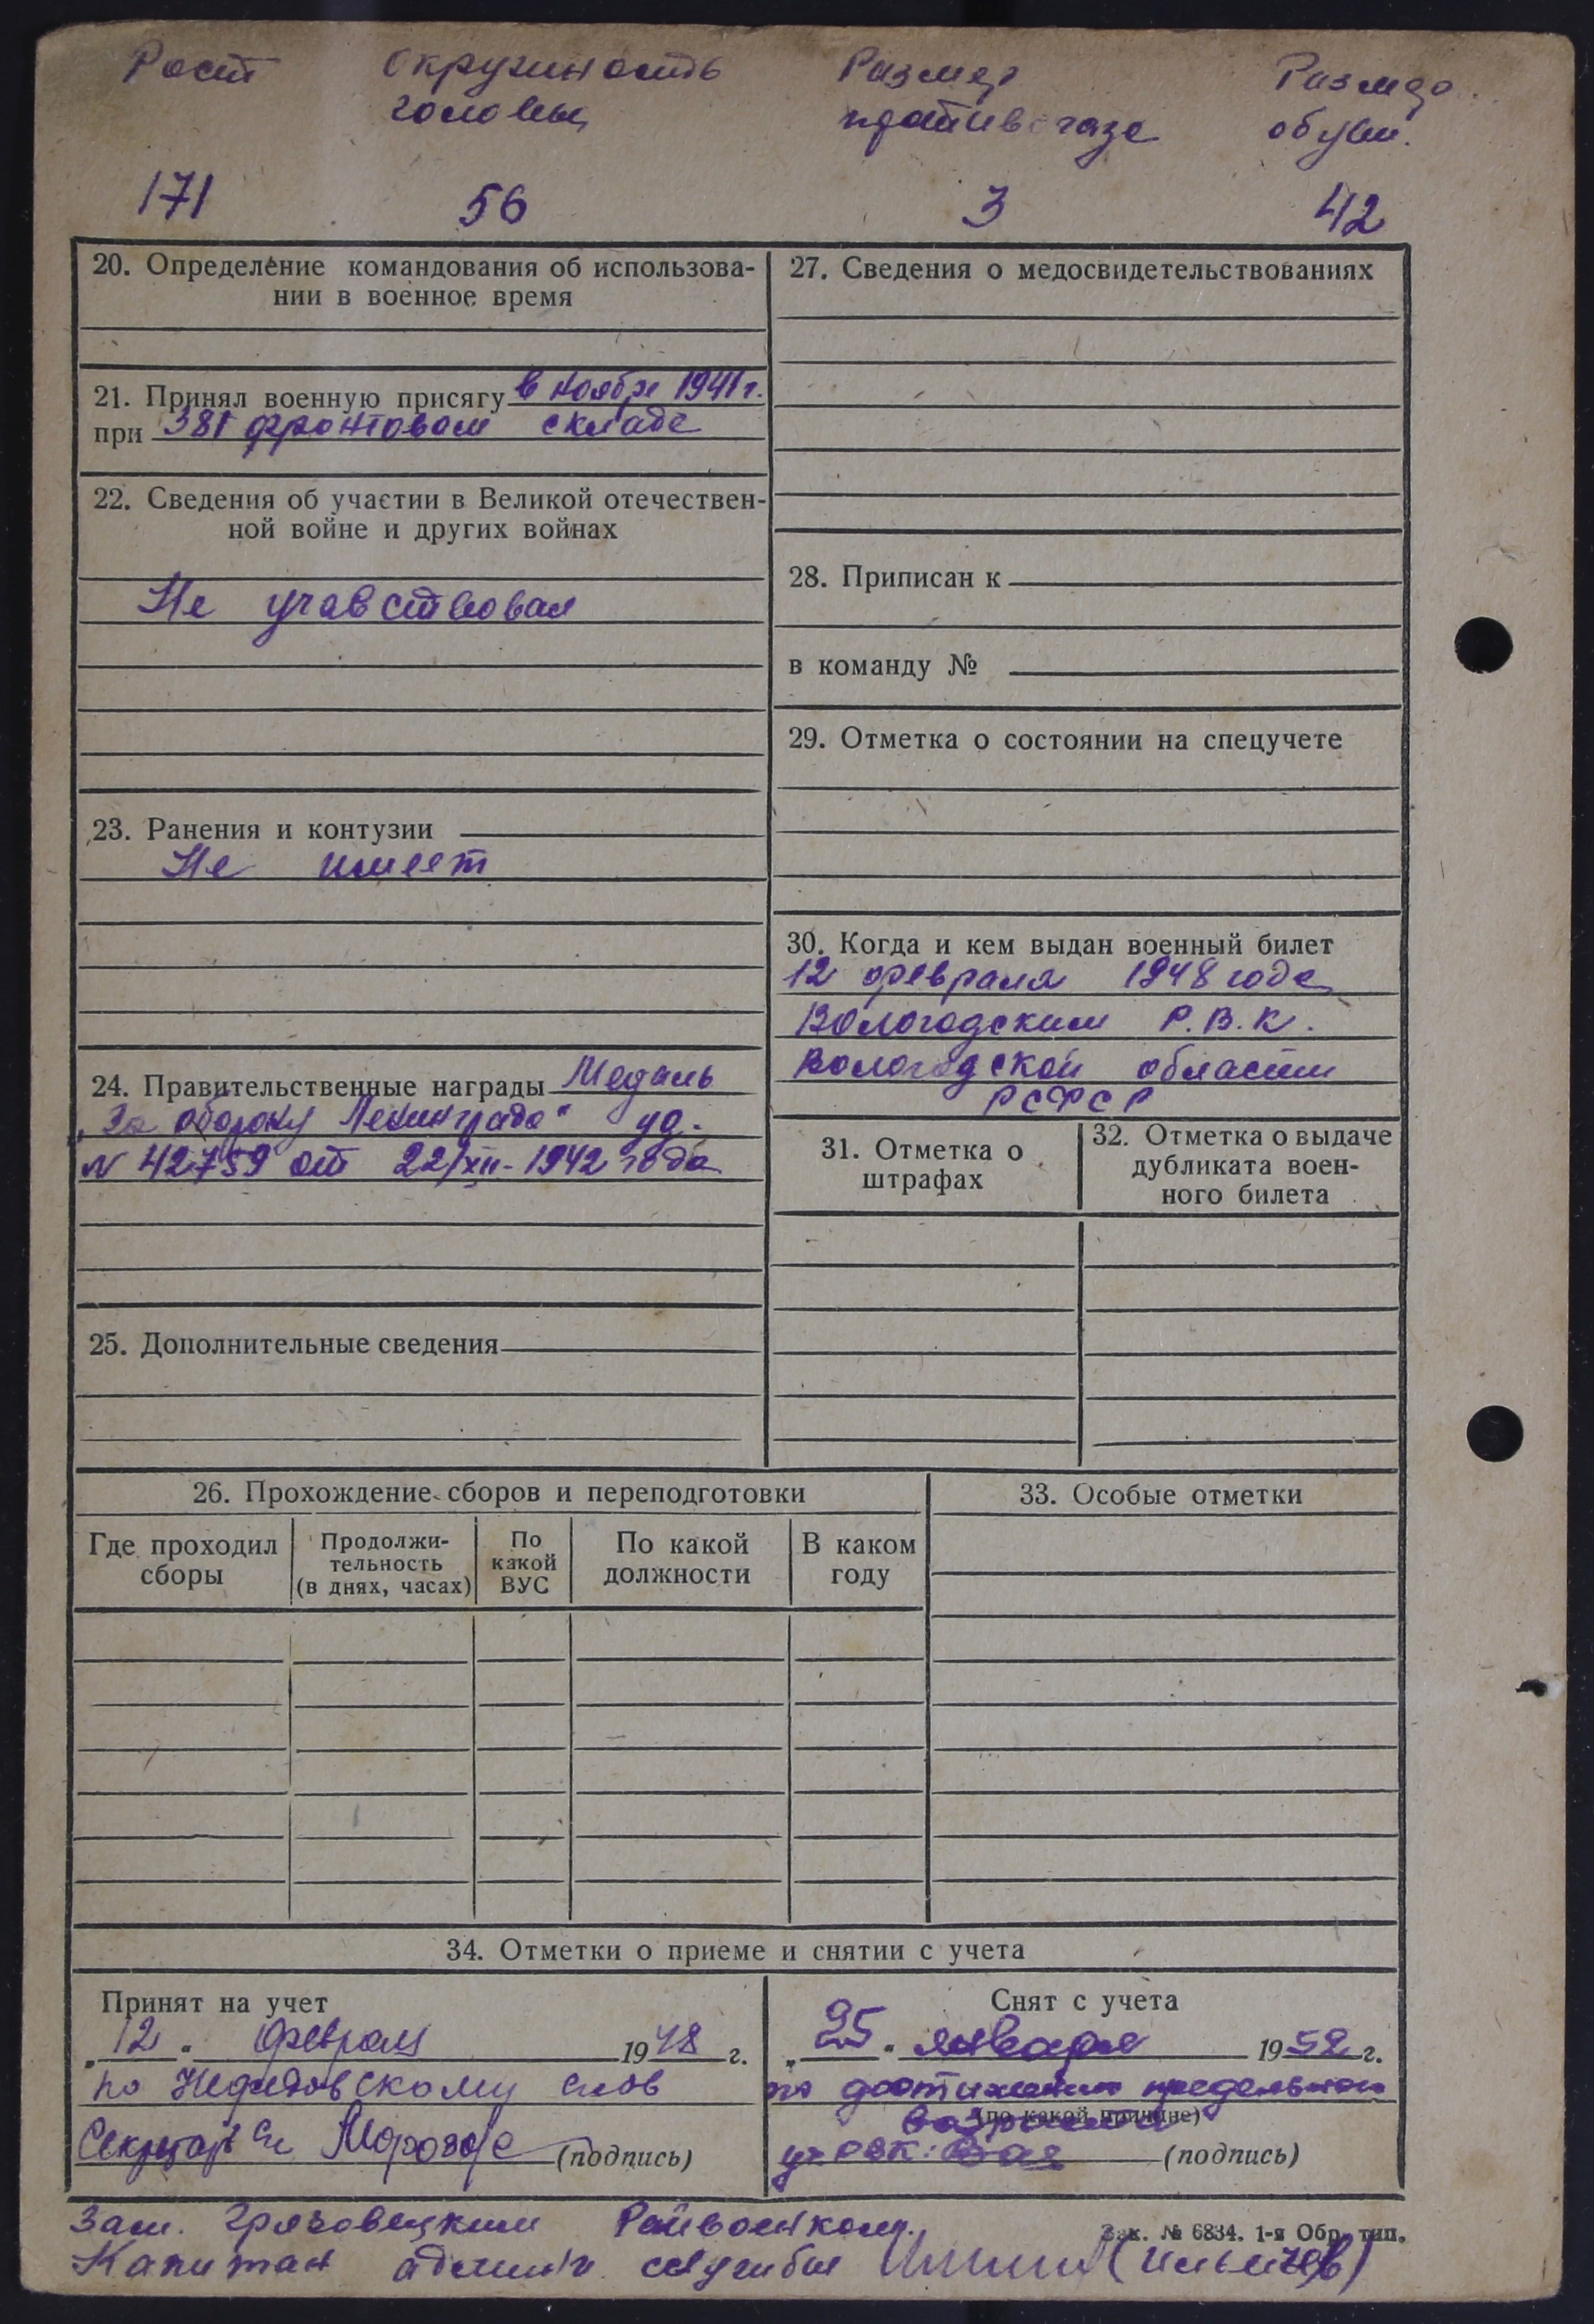 Рост окружность Размер Размер
головы противогаза обуви.
171 56 3 42
20. Определение командования об использова-
нии в военное время
21. Принял военную присягу в ноябре 1941 г.
при 381 фронтовом складе
22. Сведения об участии в Великой отечествен-
ной войне и других войнах
Не учавствовал
23. Ранения и контузии
Не имеет
24. Правительственные награды Медаль
„За оборону Ленинграда" уд.
N 42759 от 22/XII-1942 года
25. Дополнительные сведения
27. Сведения о медосвидетельствованиях
28. Приписан к
в команду №
29. Отметка о состоянии на спецучете
30. Когда и кем выдан военный билет
12 февраля 1948 года
Вологодским Р.В.К.
Вологодской области
РСФСР
31. Отметка о
штрафах
32. Отметка о выдаче
дубликата воен-
ного билета
26. Прохождение сборов и переподготовки
Где проходил
сборы
Продолжи-
тельность
(в днях, часах)
По
какой
ВУС
По какой
должности
В каком
году
33. Особые отметки
34. Отметки о приеме и снятии с учета
Принят на учет
„12" февраля 1948 г.
по Нефедовскому
Секретарь Морозов (подпись)
Снят с учета
„25" января 1952 г.
по достижении предельного
возраста
(по какой причине)
(подпись)
Зам. Грязовецким Райвоенком.
Капитан админ. службы
Зак. № 6834. 1-я Обр. тип.